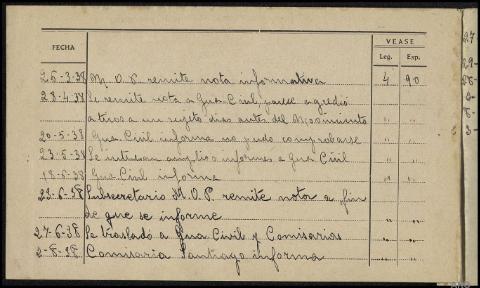 FECHA VEASE
Leg. Exp.
25-3-38 M. O. P. remite nota informativa 4 90
28-4-38 Se remite nota a Gua Civil, parece agredió " "
a tiros a un sujeto dias antes del Movimiento
20-5-38 Gua Civil informa no pudo comprobarse " "
23-5-38 Se interesan amplios informes a Gua Civil " "
18-6-38 Gua Civil informa " "
23-6-38 Subsecretario M.O.P. remite nota a fin
de que se informe " "
27-6-38 Se traslado a Gua Civil y Comisarias " "
2-8-38 Comisaria Santiago informa " "
27
29-